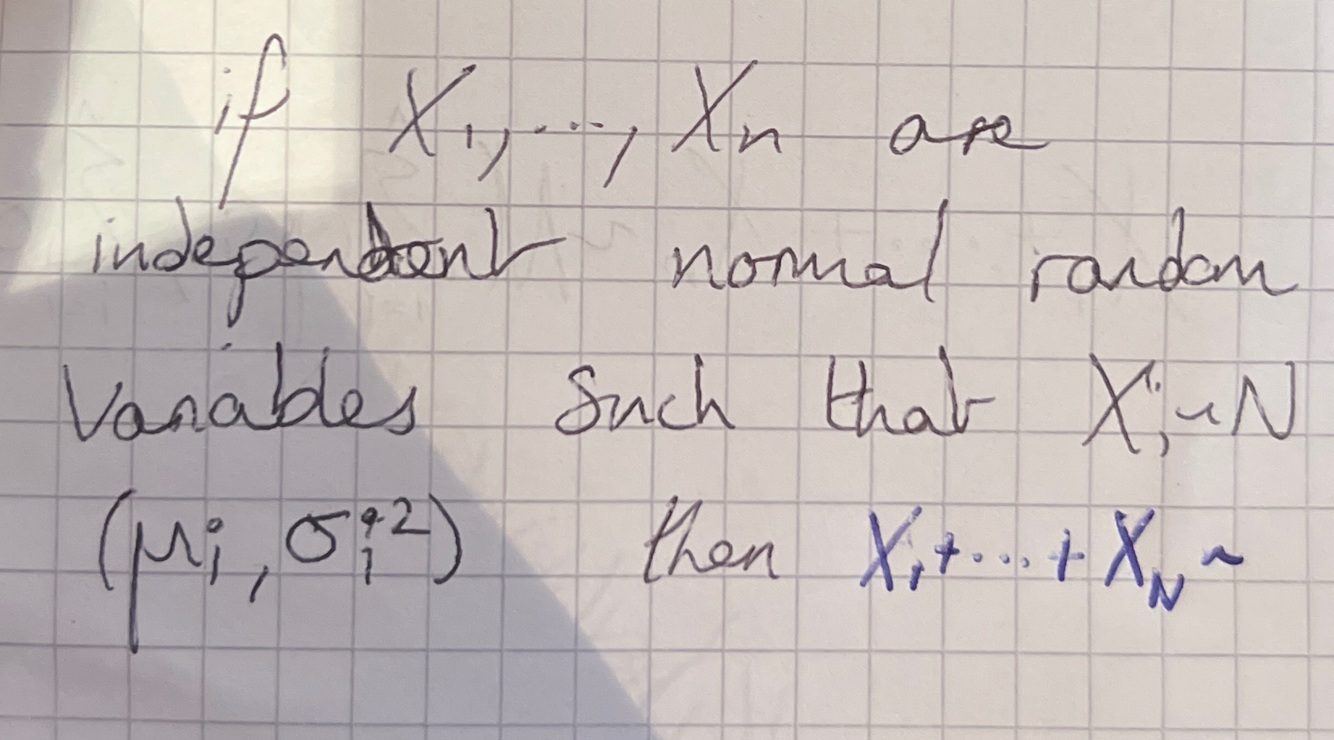 if X₁,...,Xₙ are
independent normal random
variables such that Xᵢ~N
(μᵢ, σᵢ²) then X₁+...+X_N ~